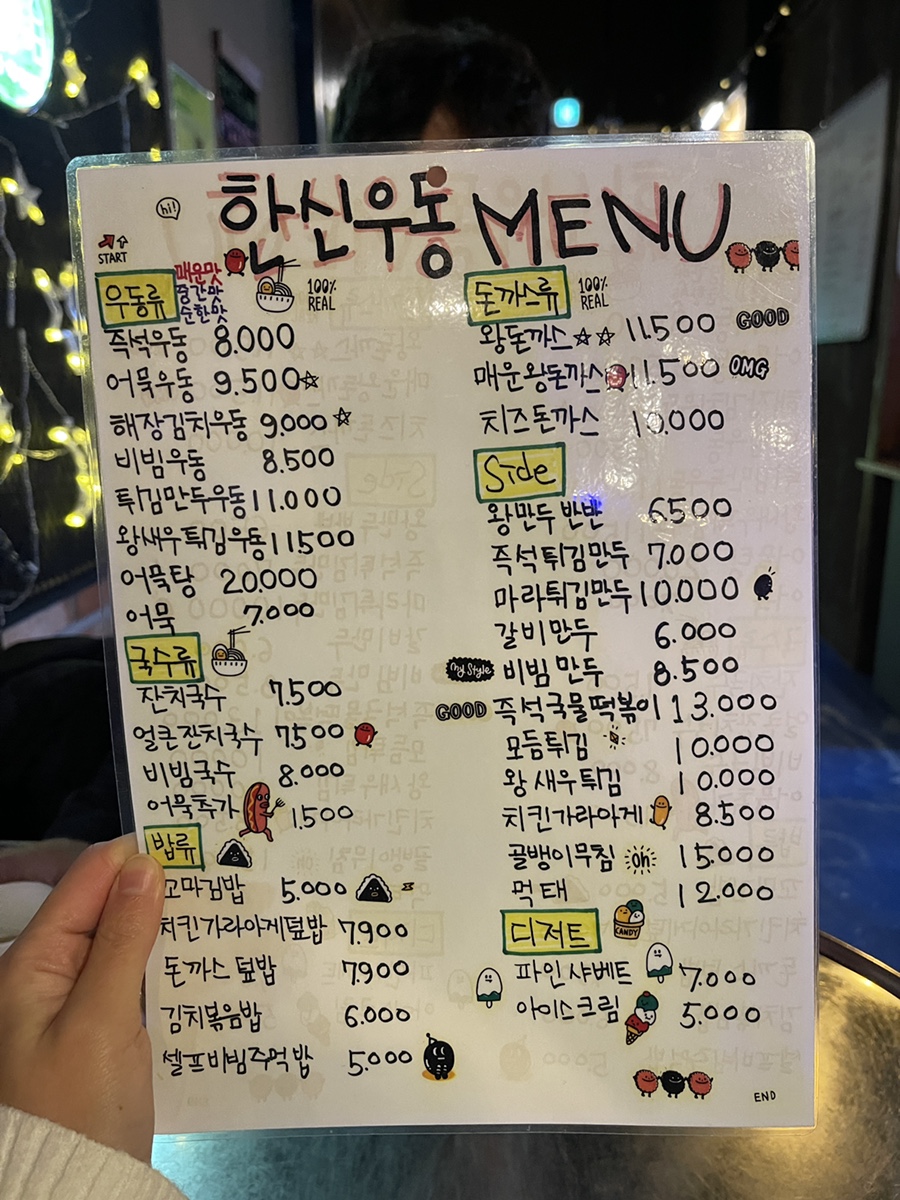 hi!
한신우동 MENU
START
우동류 매운맛 중간맛 순한맛 100% REAL
즉석우동 8.000
어묵우동 9.500☆
해장김치우동 9.000☆
비빔우동 8.500
튀김만두우동 11.000
왕새우튀김우동 11500
어묵탕 20.000
어묵 7.000
국수류
잔치국수 7.500
얼큰잔치국수 7.500
비빔국수 8.000
어묵추가 1.500
밥류
꼬마김밥 5.000
치킨가라아게덮밥 7.900
돈까스 덮밥 7.900
김치볶음밥 6.000
셀프비빔주먹밥 5.000
돈까스류 100% REAL
왕돈까스☆☆ 11.500 GOOD
매운왕돈까스 11.500 OMG
치즈돈까스 10.000
Side
왕만두 반반 6500
즉석튀김만두 7.000
마라튀김만두 10.000
갈비만두 6.000
My Style 비빔만두 8.500
GOOD 즉석국물떡볶이 13.000
모듬튀김 10.000
왕새우튀김 10.000
치킨가라아게 8.500
골뱅이무침 Oh 15.000
먹태 12.000
디저트 CANDY
파인샤베트 7.000
아이스크림 5.000
END